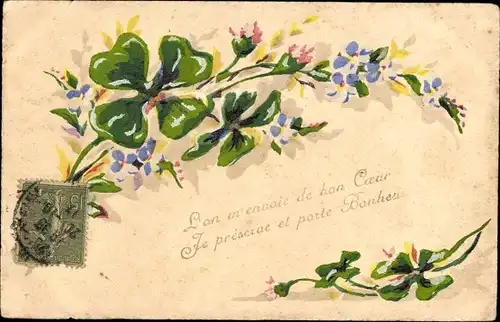 L'on m'envoie de bon Cœur
Je préserve et porte Bonheur